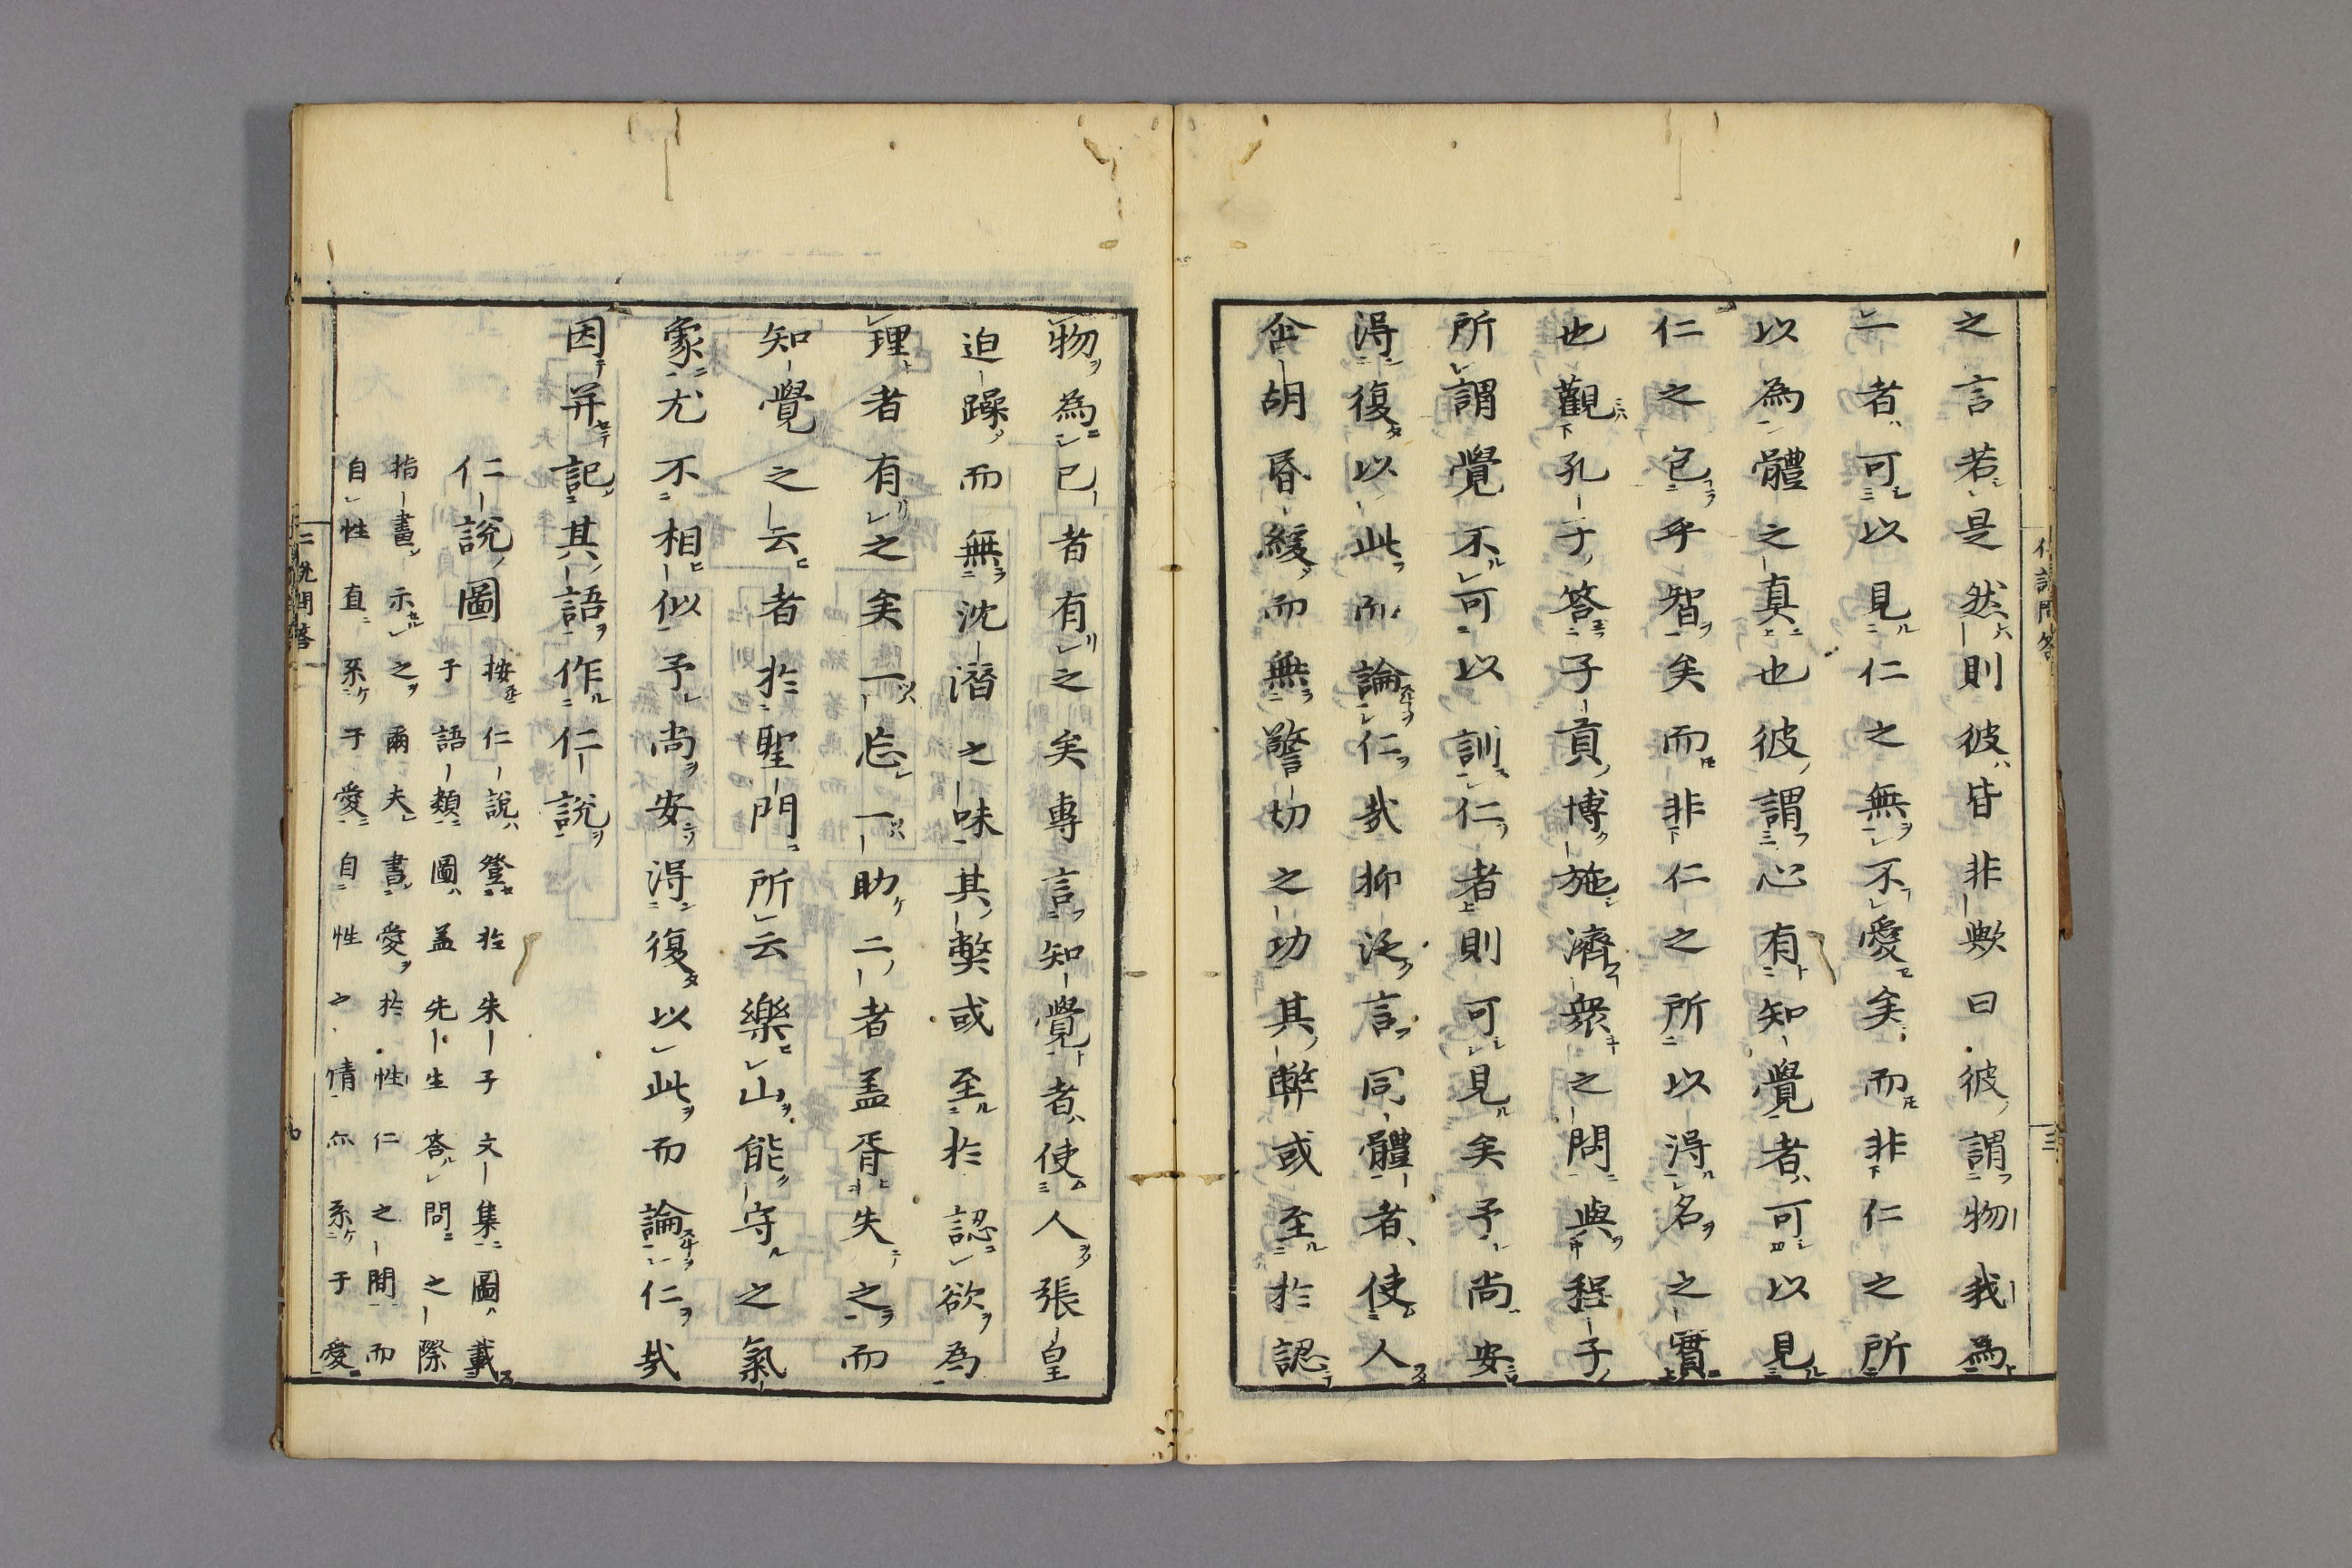 仁說問答 三
之言若是然則彼皆非歟曰彼謂物我為
一者可以見仁之無不愛矣而非仁之所
以為體之真也彼謂心有知覺者可以見
仁之包乎智矣而非仁之所以得名之實
也觀孔子答子貢博施濟衆之問與程子
所謂覺不可以訓仁者則可見矣予尚安
得復以此而論仁哉抑泛言同體者使人
含胡昏緩而無警切之功其弊或至於認
物為己者有之矣專言知覺者使人張皇
迫躁而無沈潛之味其弊或至於認欲為
理者有之矣一忘一助二者盖胥失之而
知覺之云者於聖門所云樂山能守之氣
象尤不相似予尚安得復以此而論仁哉
因并記其語作仁說
仁說圖 按仁說登於朱子文集圖載
于語類圖盖先生答問之際
指畫示之爾夫書愛於性仁之間而
自性直系于愛自性之情亦系于愛
仁說問答